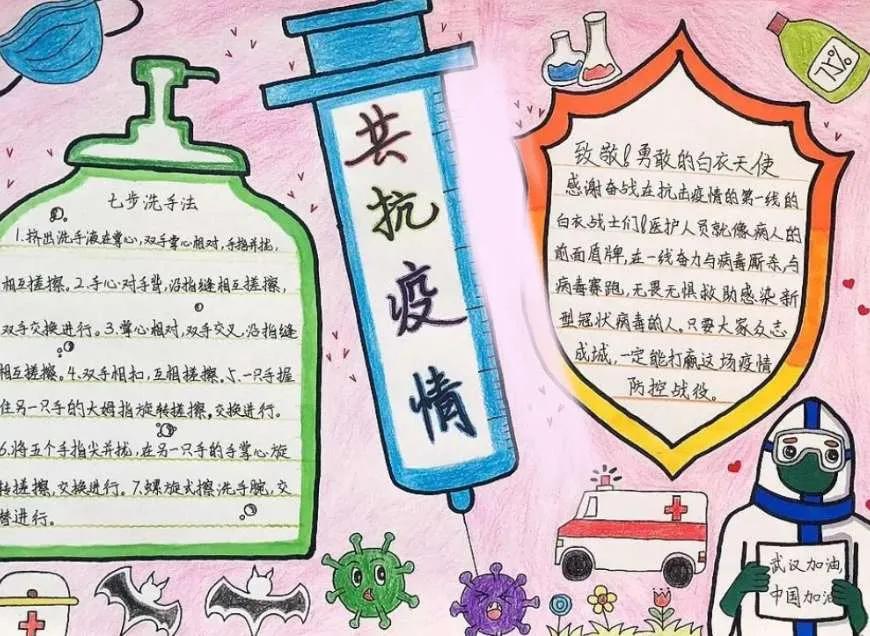 共抗疫情
七步洗手法
1.挤出洗手液在掌心,双手掌心相对,手指并拢,
相互搓擦。2.手心对手背,沿指缝相互搓擦,
双手交换进行。3.掌心相对,双手交叉,沿指缝
相互搓擦。4.双手相扣,互相搓擦。5.一只手握
住另一只手的大姆指旋转搓擦,交换进行。
6.将五个手指尖并拢,在另一只手的手掌心旋
转搓擦,交换进行。7.螺旋式擦洗手腕,交
替进行。
75%
致敬!勇敢的白衣天使
感谢奋战在抗击疫情的第一线的
白衣战士们!医护人员就像病人的
前面盾牌,在一线奋力与病毒厮杀,与
病毒赛跑,无畏无惧救助感染新
型冠状病毒的人。只要大家众志
成城,一定能打赢这场疫情
防控战役。
武汉加油,
中国加油